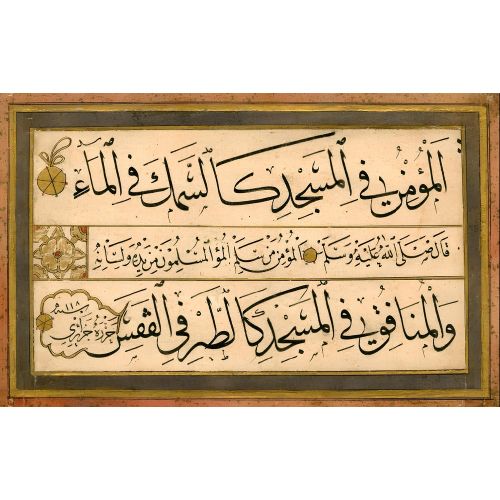 المؤمن في المسجد كالسمك في الماء
قال صلى الله عليه وسلم المؤمن من سلم المؤ المسلمون من يده ولسانه
والمنافق في المسجد كالطير في القفس
حرره